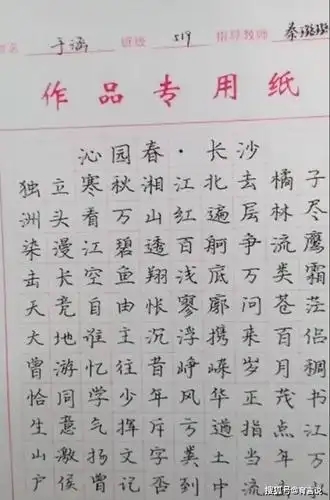 名 于涵 班级 519 指导教师 秦璐璐
作品专用纸
沁园春·长沙
独立寒秋湘江北去橘子
洲头看万山红遍层林尽
染漫江碧透百舸争流鹰
击长空鱼翔浅底万类霜
天竞自由怅寥廓问苍茫
大地谁主沉浮携来百侣
曾游忆往昔峥嵘岁月稠
恰同学少年风华正茂书
生意气挥斥方遒指点江
山激扬文字粪土当年万
户侯曾记否到中流
搜狐号@育言说